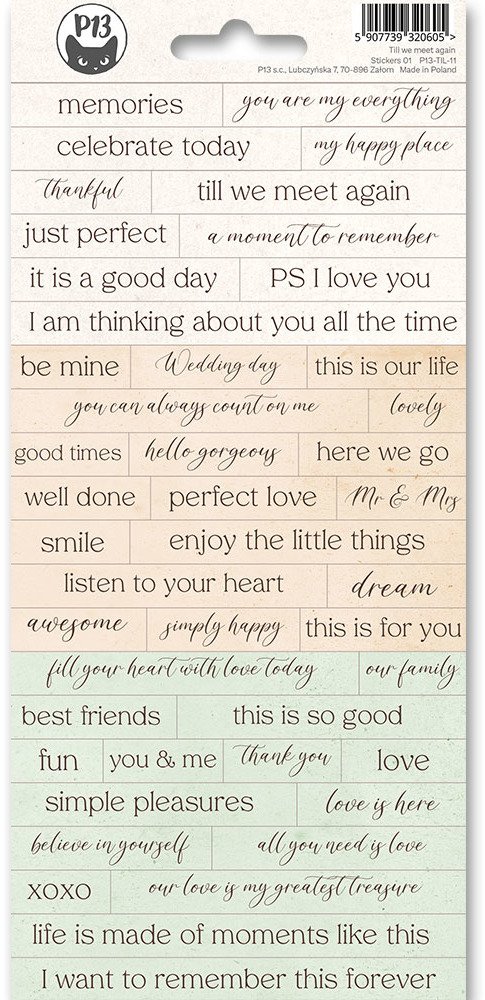 P13
5907739 320605 >
Till we meet again
Stickers 01 P13-TIL-11
P13 s.c., Lubczyńska 7, 70-896 Załom Made in Poland
memories you are my everything
celebrate today my happy place
thankful till we meet again
just perfect a moment to remember
it is a good day PS I love you
I am thinking about you all the time
be mine Wedding day this is our life
you can always count on me lovely
good times hello gorgeous here we go
well done perfect love Mr & Mrs
smile enjoy the little things
listen to your heart dream
awesome simply happy this is for you
fill your heart with love today our family
best friends this is so good
fun you & me thank you love
simple pleasures love is here
believe in yourself all you need is love
xoxo our love is my greatest treasure
life is made of moments like this
I want to remember this forever